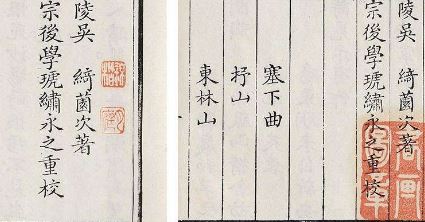 陵吳 綺薗次著
宗後學琥繡永之重校
陵吳 綺薗次著
宗後學琥繡永之重校
塞下曲
杼山
東林山